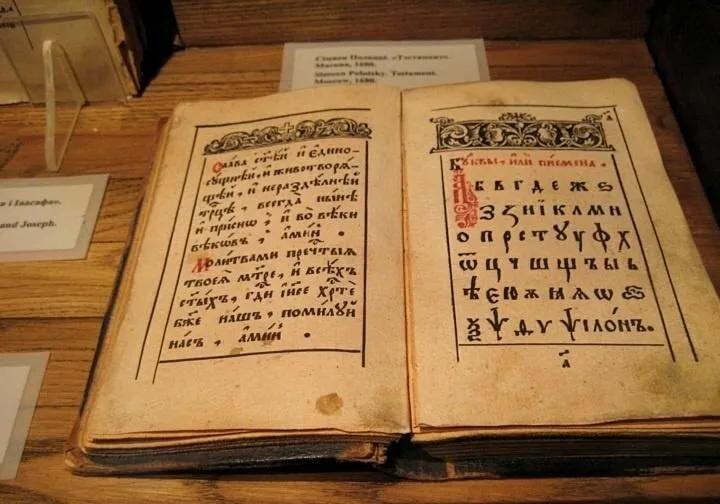 Сімяон Полацкі. «Тэстамент».
Масква, 1680.
Simeon Polotsky. Testament.
Moscow, 1680.
і Іаасафа».
and Joseph.
Сла́ва ст҃ѣ́й и҆ є҆дино-
сꙋ́щнѣй, и҆ животворѧ́-
щей, и҆ нераздѣ́лнѣй
трⷪ҇цѣ, всегда̀ ны́нѣ
и҆ при́снѡ, и҆ во вѣ́ки
вѣкѡ́въ, а҆ми́нь.
Моли́твами пречⷭ҇тыѧ
твоеѧ̀ мт҃ре, и҆ всѣ́хъ
ст҃ы́хъ, гдⷭ҇и і҆и҃се хрⷭ҇те
бж҃е на́шъ, поми́лꙋй
на́съ, а҆ми́нь.
а҃
Бꙋквы, и҆лѝ писмена.
А б в г д е ж ѕ
з ꙁ и ї к л м н
о п р с т ꙋ у ф х
ѿ ц ч ш щ ъ ы ь
ѣ є ю ѫ ѧ ѡ
ѯ ѱ ѵ ѱілѡ́нъ.
а҃